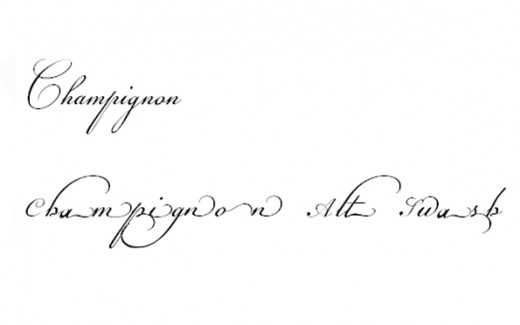 Champignon
Champignon Alt Swash